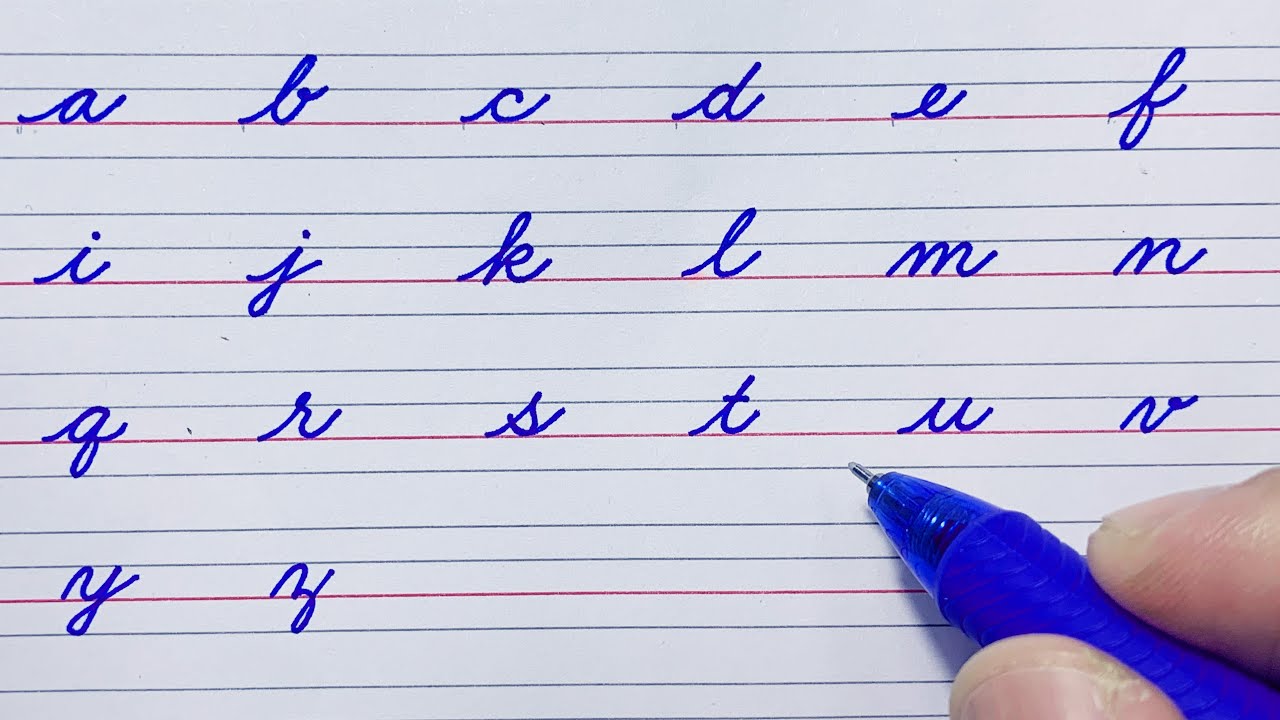 a b c d e f
i j k l m n
q r s t u v
y z